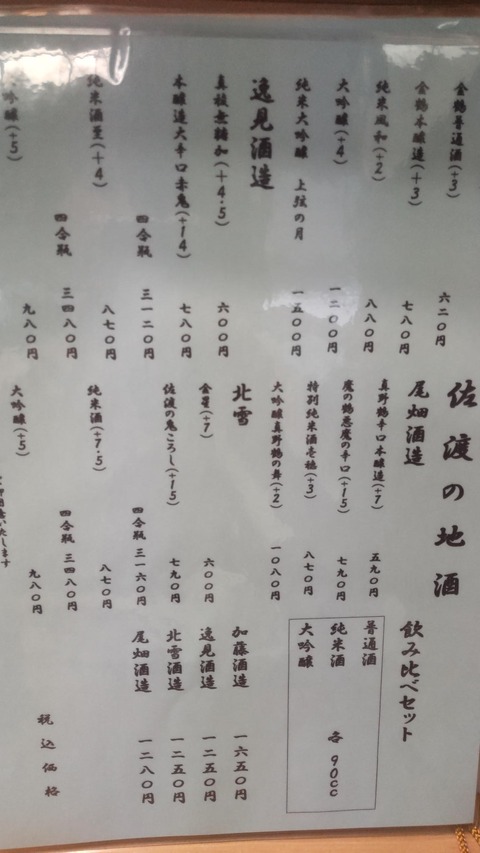 佐渡の地酒
金鶴普通酒(+3) 六二〇円
金鶴本醸造(+3) 七八〇円
純米風和(+2) 八八〇円
大吟醸(+4) 一二〇〇円
純米大吟醸 上弦の月 一五〇〇円
逸見酒造
真稜無糖加(+4.5) 六〇〇円
本醸造大辛口赤鬼(+14) 七八〇円
四合瓶 三一二〇円
純米酒至(+4) 八七〇円
四合瓶 三四八〇円
吟醸(+5) 九八〇円
尾畑酒造
真野鶴辛口本醸造(+7) 五九〇円
魔の鶴悪魔の辛口(+15) 七九〇円
特別純米酒壱穂(+3) 八七〇円
大吟醸真野鶴の舞(+2) 一〇八〇円
北雪
金星(+7) 六〇〇円
佐渡の鬼ころし(+15) 七九〇円
四合瓶 三一六〇円
純米酒(+7.5) 八七〇円
四合瓶 三四八〇円
大吟醸(+5) 九八〇円
いたします
飲み比べセット
普通酒
純米酒 各90cc
大吟醸
加藤酒造 一六五〇円
逸見酒造 一二五〇円
北雪酒造 一二五〇円
尾畑酒造 一二八〇円
税込価格